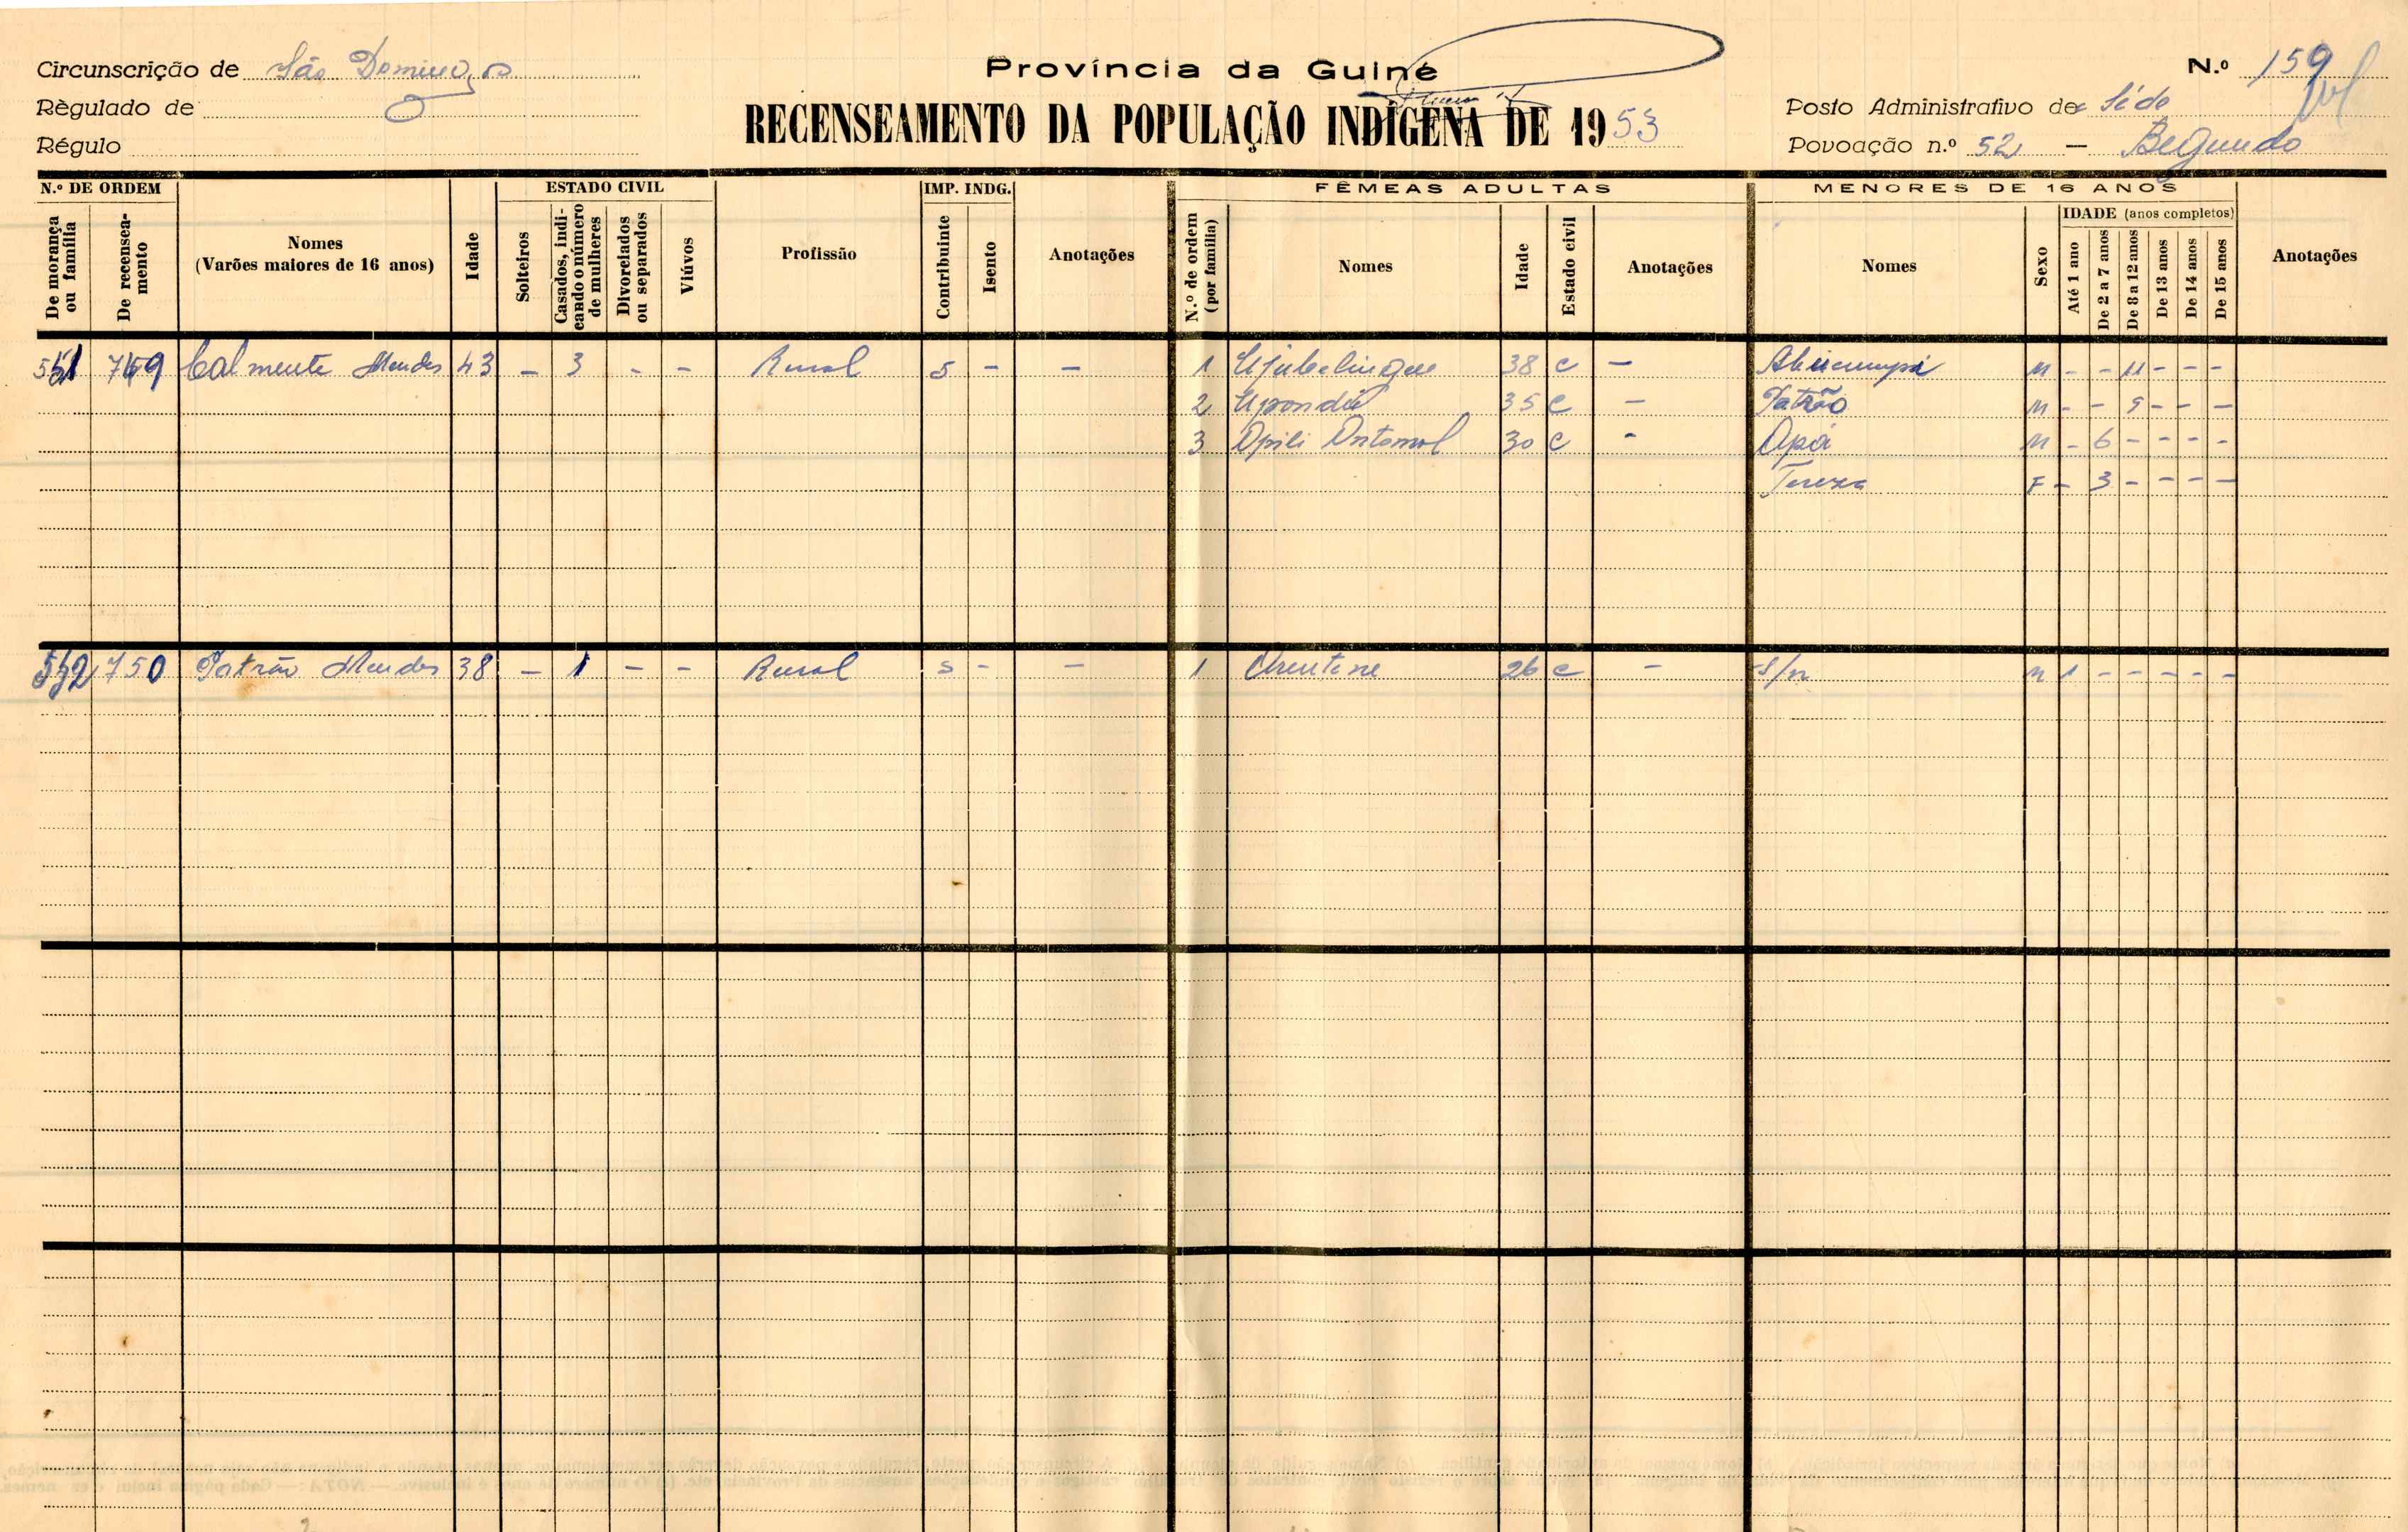 Circunscrição de São Domingos
Régulado de
Régulo
Província da Guiné
RECENSEAMENTO DA POPULAÇÃO INDÍGENA DE 1953
N.º 159
Posto Administrativo de Séde
Povoação n.º 52 — Begundo
N.º DE ORDEM
De morança ou família
De recenseamento
Nomes
(Varões maiores de 16 anos)
Idade
ESTADO CIVIL
Solteiros
Casados, indicando o número de mulheres
Divorciados ou separados
Viúvos
Profissão
IMP. INDG.
Contribuinte
Isento
Anotações
FÊMEAS ADULTAS
N.º de ordem (por família)
Nomes
Idade
Estado civil
Anotações
MENORES DE 16 ANOS
Nomes
Sexo
IDADE (anos completos)
Até 1 ano
De 2 a 7 anos
De 8 a 12 anos
De 13 anos
De 14 anos
De 15 anos
Anotações
749 Calmente Mendes 43 - 3 - - Rural S - - 1 38 C - M - - 11 - - -
2 35 C - Patrão M - - 9 - - -
3 Opili 30 C - Apá M - 6 - - - -
Tereza F - 3 - - - -
750 Patrão Mendes 38 - 1 - - Rural S - - 1 26 C - S/n M 1 - - - - -